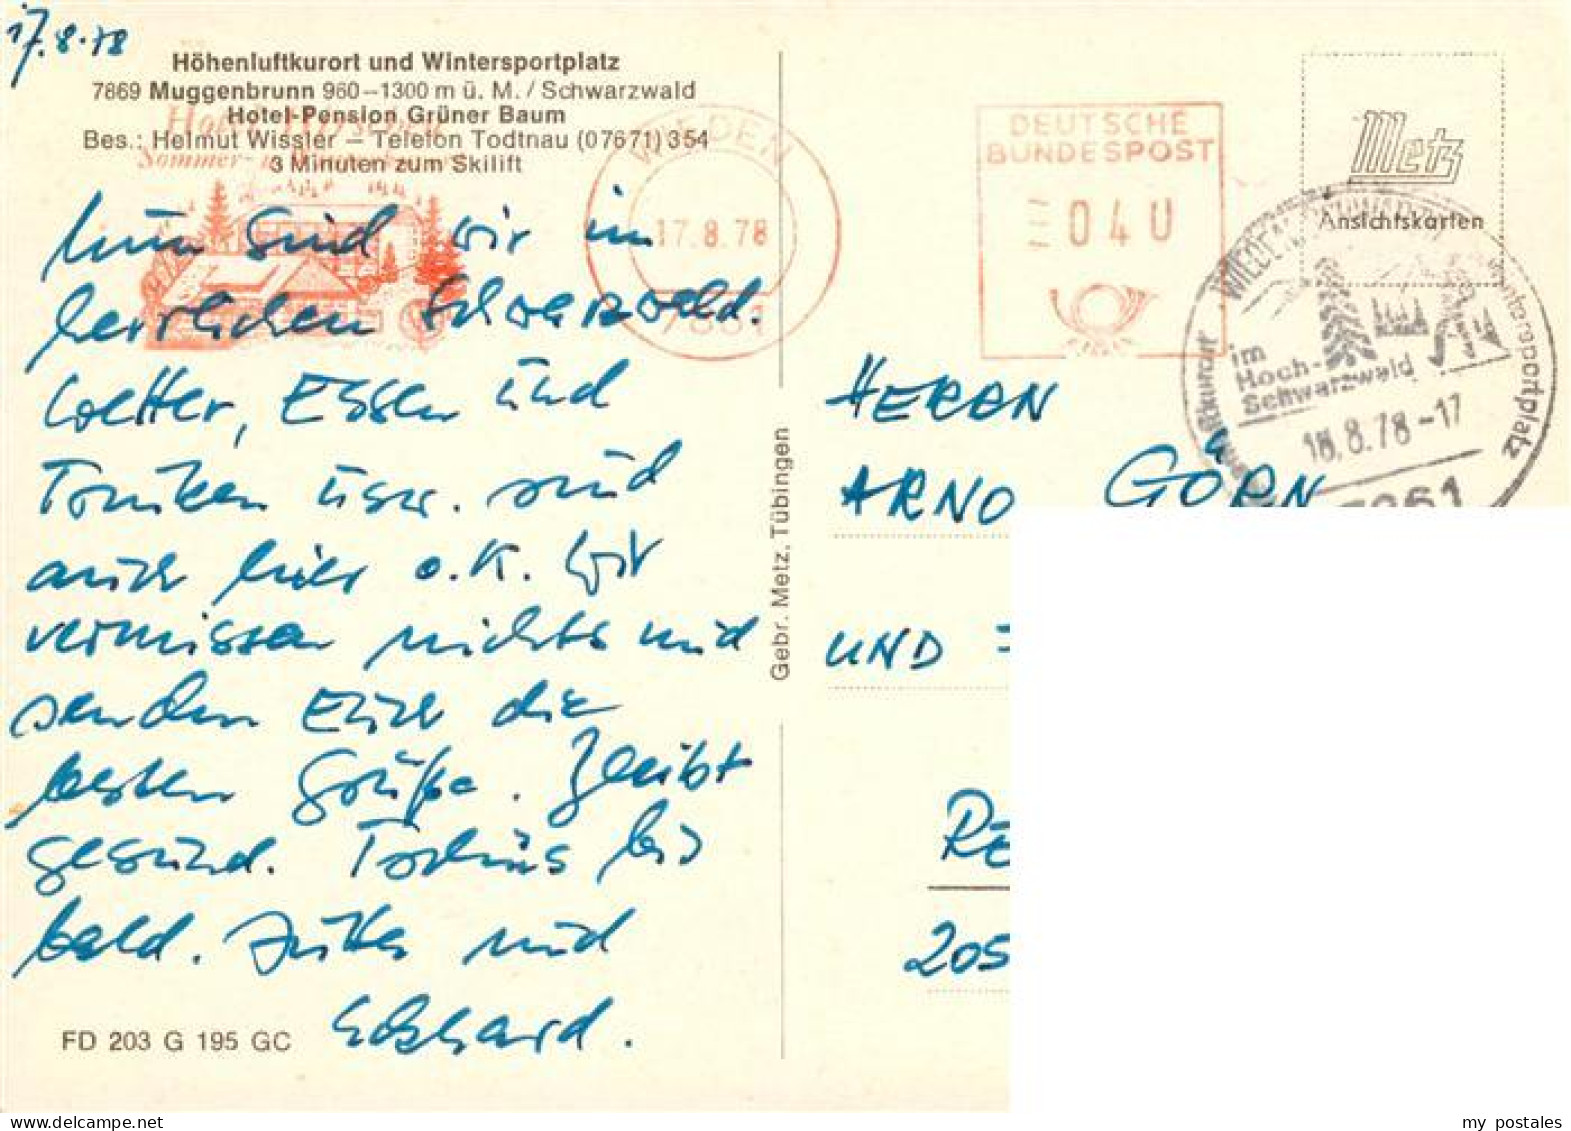 17.8.78
Höhenluftkurort und Wintersportplatz
7869 Muggenbrunn 960–1300 m ü. M. / Schwarzwald
Hotel-Pension Grüner Baum
Bes.: Helmut Wissler – Telefon Todtnau (07671) 354
3 Minuten zum Skilift
Nun sind wir im
herrlichen Schwarzwald.
Wetter, Essen und
Trinken usw. sind
auch hier o.K. Wir
vermissen nichts und
senden Euch die
besten Grüße. Bleibt
gesund. Tschüs bis
bald. Jutta und
Eckhard.
FD 203 G 195 GC
Gebr. Metz, Tübingen
WIEDEN
17.8.78
DEUTSCHE
BUNDESPOST
04U
Metz
Ansichtskarten
im
Hoch-
Schwarzwald
18.8.78-17
Wintersportplatz
HERRN
ARNO GÖRN
UND
RE
205
my_postales